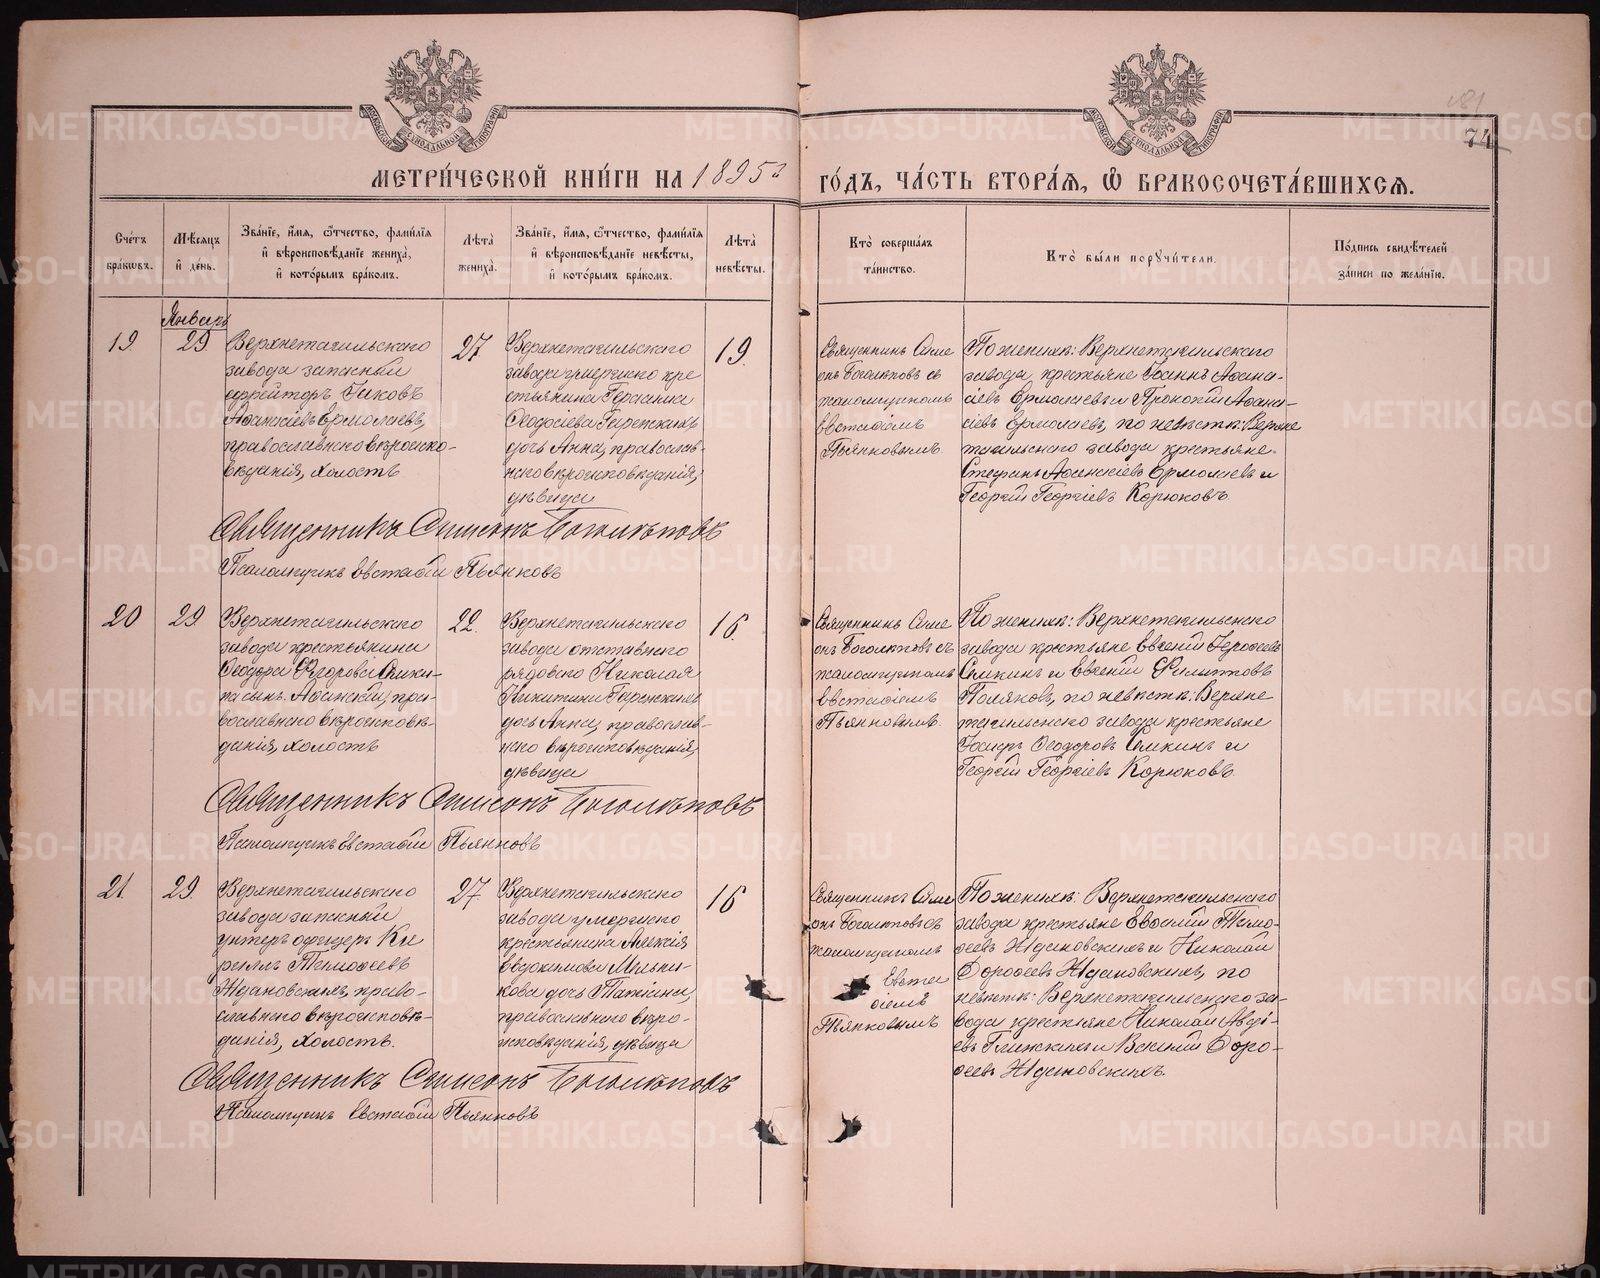 МОСКОВСКОЙ СѴНОДАЛЬНОЙ ТИПОГРАФІИ
МОСКОВСКОЙ СѴНОДАЛЬНОЙ ТИПОГРАФІИ
181
74
МЕТРИ́ЧЕСКОЙ КНИ́ГИ НА 1895 й
ГО́ДЪ, ЧА́СТЬ ВТОРА́Я, Ѽ БРАКОСОЧЕТА́ВШИХСЯ.
Сче́тъ бра́кѡвъ.
Мѣ́сяцъ й де́нь.
Зва́нїе, и́мя, ѻ́тчество, фами́лїя й вѣроисповѣ́данїе жениха̀, й кото́рымъ бра́комъ.
Лѣ́та жениха̀.
Зва́нїе, и́мя, ѻ́тчество, фами́лїя й вѣроисповѣ́данїе невѣ́сты, й кото́рымъ бра́комъ.
Лѣ́та невѣ́сты.
Кто̀ соверша́лъ та́инство.
Кто̀ бы́ли порꙋчи́тели.
По́дпись свидѣ́телей за́писи по жела́нїю.
Январь
19
29
Верхнетагильскаго
завода запасный
ефрейторъ Іаковъ
Аѳанасіевъ Ермолаевъ,
православнаго вѣроиспо-
вѣданія, холостъ
27
Верхнетагильскаго
завода умершаго кре
стьянина Герасима
Ѳеодосіева
дочь Анна, православ-
наго вѣроисповѣданія,
дѣвица
19
Священникъ Симе
онъ Боголѣповъ съ
псаломщикомъ
Евстаѳіемъ
Пьянковымъ
По женихѣ: Верхнетагильскаго
завода крестьяне Іоаннъ Аѳана-
сіевъ Ермолаевъ и Прокопій Аѳана-
сіевъ Ермолаевъ, по невѣстѣ: Верхне
тагильскаго завода крестьяне
Стефанъ Аѳанасіевъ Ермолаевъ и
Георгій Георгіевъ Корюковъ
Священникъ Симеонъ Боголѣповъ
Псаломщикъ Евстаѳій Пьянковъ
20
29
Верхнетагильскаго
завода крестьянина
Ѳеодора
сынъ православнаго вѣроисповѣ-
данія, холостъ
22
Верхнетагильскаго
завода отставного
рядового Николая
Никитина
дочь Анна, православ-
наго вѣроисповѣданія,
дѣвица
16
Священникъ Симе
онъ Боголѣповъ съ
псаломщикомъ
Евстаѳіемъ
Пьянковымъ
По женихѣ: Верхнетагильскаго
завода крестьяне Евгеній
и Евгеній Филипповъ
Поляковъ, по невѣстѣ: Верхне
тагильскаго завода крестьяне
Ѳеодоровъ и
Георгій Георгіевъ Корюковъ
Священникъ Симеонъ Боголѣповъ
Псаломщикъ Евстаѳій Пьянковъ
21.
29.
Верхнетагильскаго
завода запасный
унтеръ офицеръ Ки
риллъ Тимоѳеевъ
Ждановскихъ, право-
славнаго вѣроисповѣ-
данія, холостъ.
27
Верхнетагильскаго
завода умершаго
крестьянина Алексія
Евдокимова Мельни-
кова дочь Татіана,
православнаго вѣро-
исповѣданія, дѣвица
16
Священникъ Симе
онъ Боголѣповъ съ
псаломщикомъ
Евста
ѳіемъ
Пьянковымъ
По женихѣ: Верхнетагильскаго
завода крестьяне Евѳимій Тимо-
ѳеевъ Ждановскихъ и Николай
Дороѳеевъ Ждановскихъ, по
невѣстѣ: Верхнетагильскаго за-
вода крестьяне Николай Авді-
евъ и Василій Доро-
ѳеевъ Ждановскихъ.
Священникъ Симеонъ Боголѣповъ
Псаломщикъ Евстаѳій Пьянковъ
METRIKI.GASO-URAL.RU